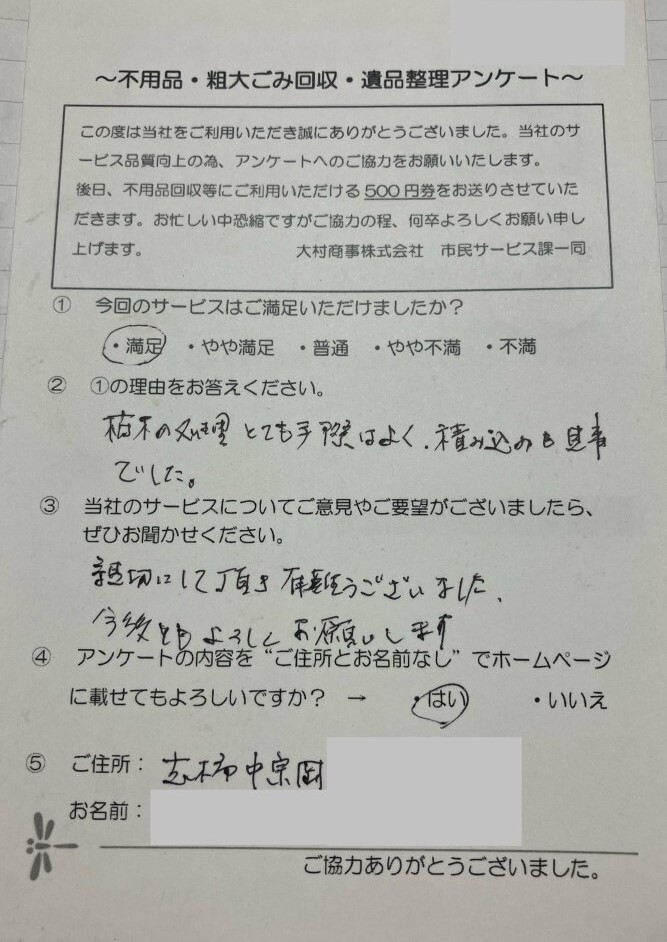 ～不用品・粗大ごみ回収・遺品整理アンケート～
この度は当社をご利用いただき誠にありがとうございました。当社のサ
ービス品質向上の為、アンケートへのご協力をお願いいたします。
後日、不用品回収等にご利用いただける500円券をお送りさせていた
だきます。お忙しい中恐縮ですがご協力の程、何卒よろしくお願い申し
上げます。 大村商事株式会社 市民サービス課一同
① 今回のサービスはご満足いただけましたか？
・満足 ・やや満足 ・普通 ・やや不満 ・不満
② ①の理由をお答えください。
植木の処理とても手際はよく、積み込みも見事
でした。
③ 当社のサービスについてご意見やご要望がございましたら、
ぜひお聞かせください。
親切にして頂き有難うございました、
今後ともよろしくお願いします
④ アンケートの内容を“ご住所とお名前なし”でホームページ
に載せてもよろしいですか？ → ・はい ・いいえ
⑤ ご住所：志木市中宗岡
お名前：
ご協力ありがとうございました。